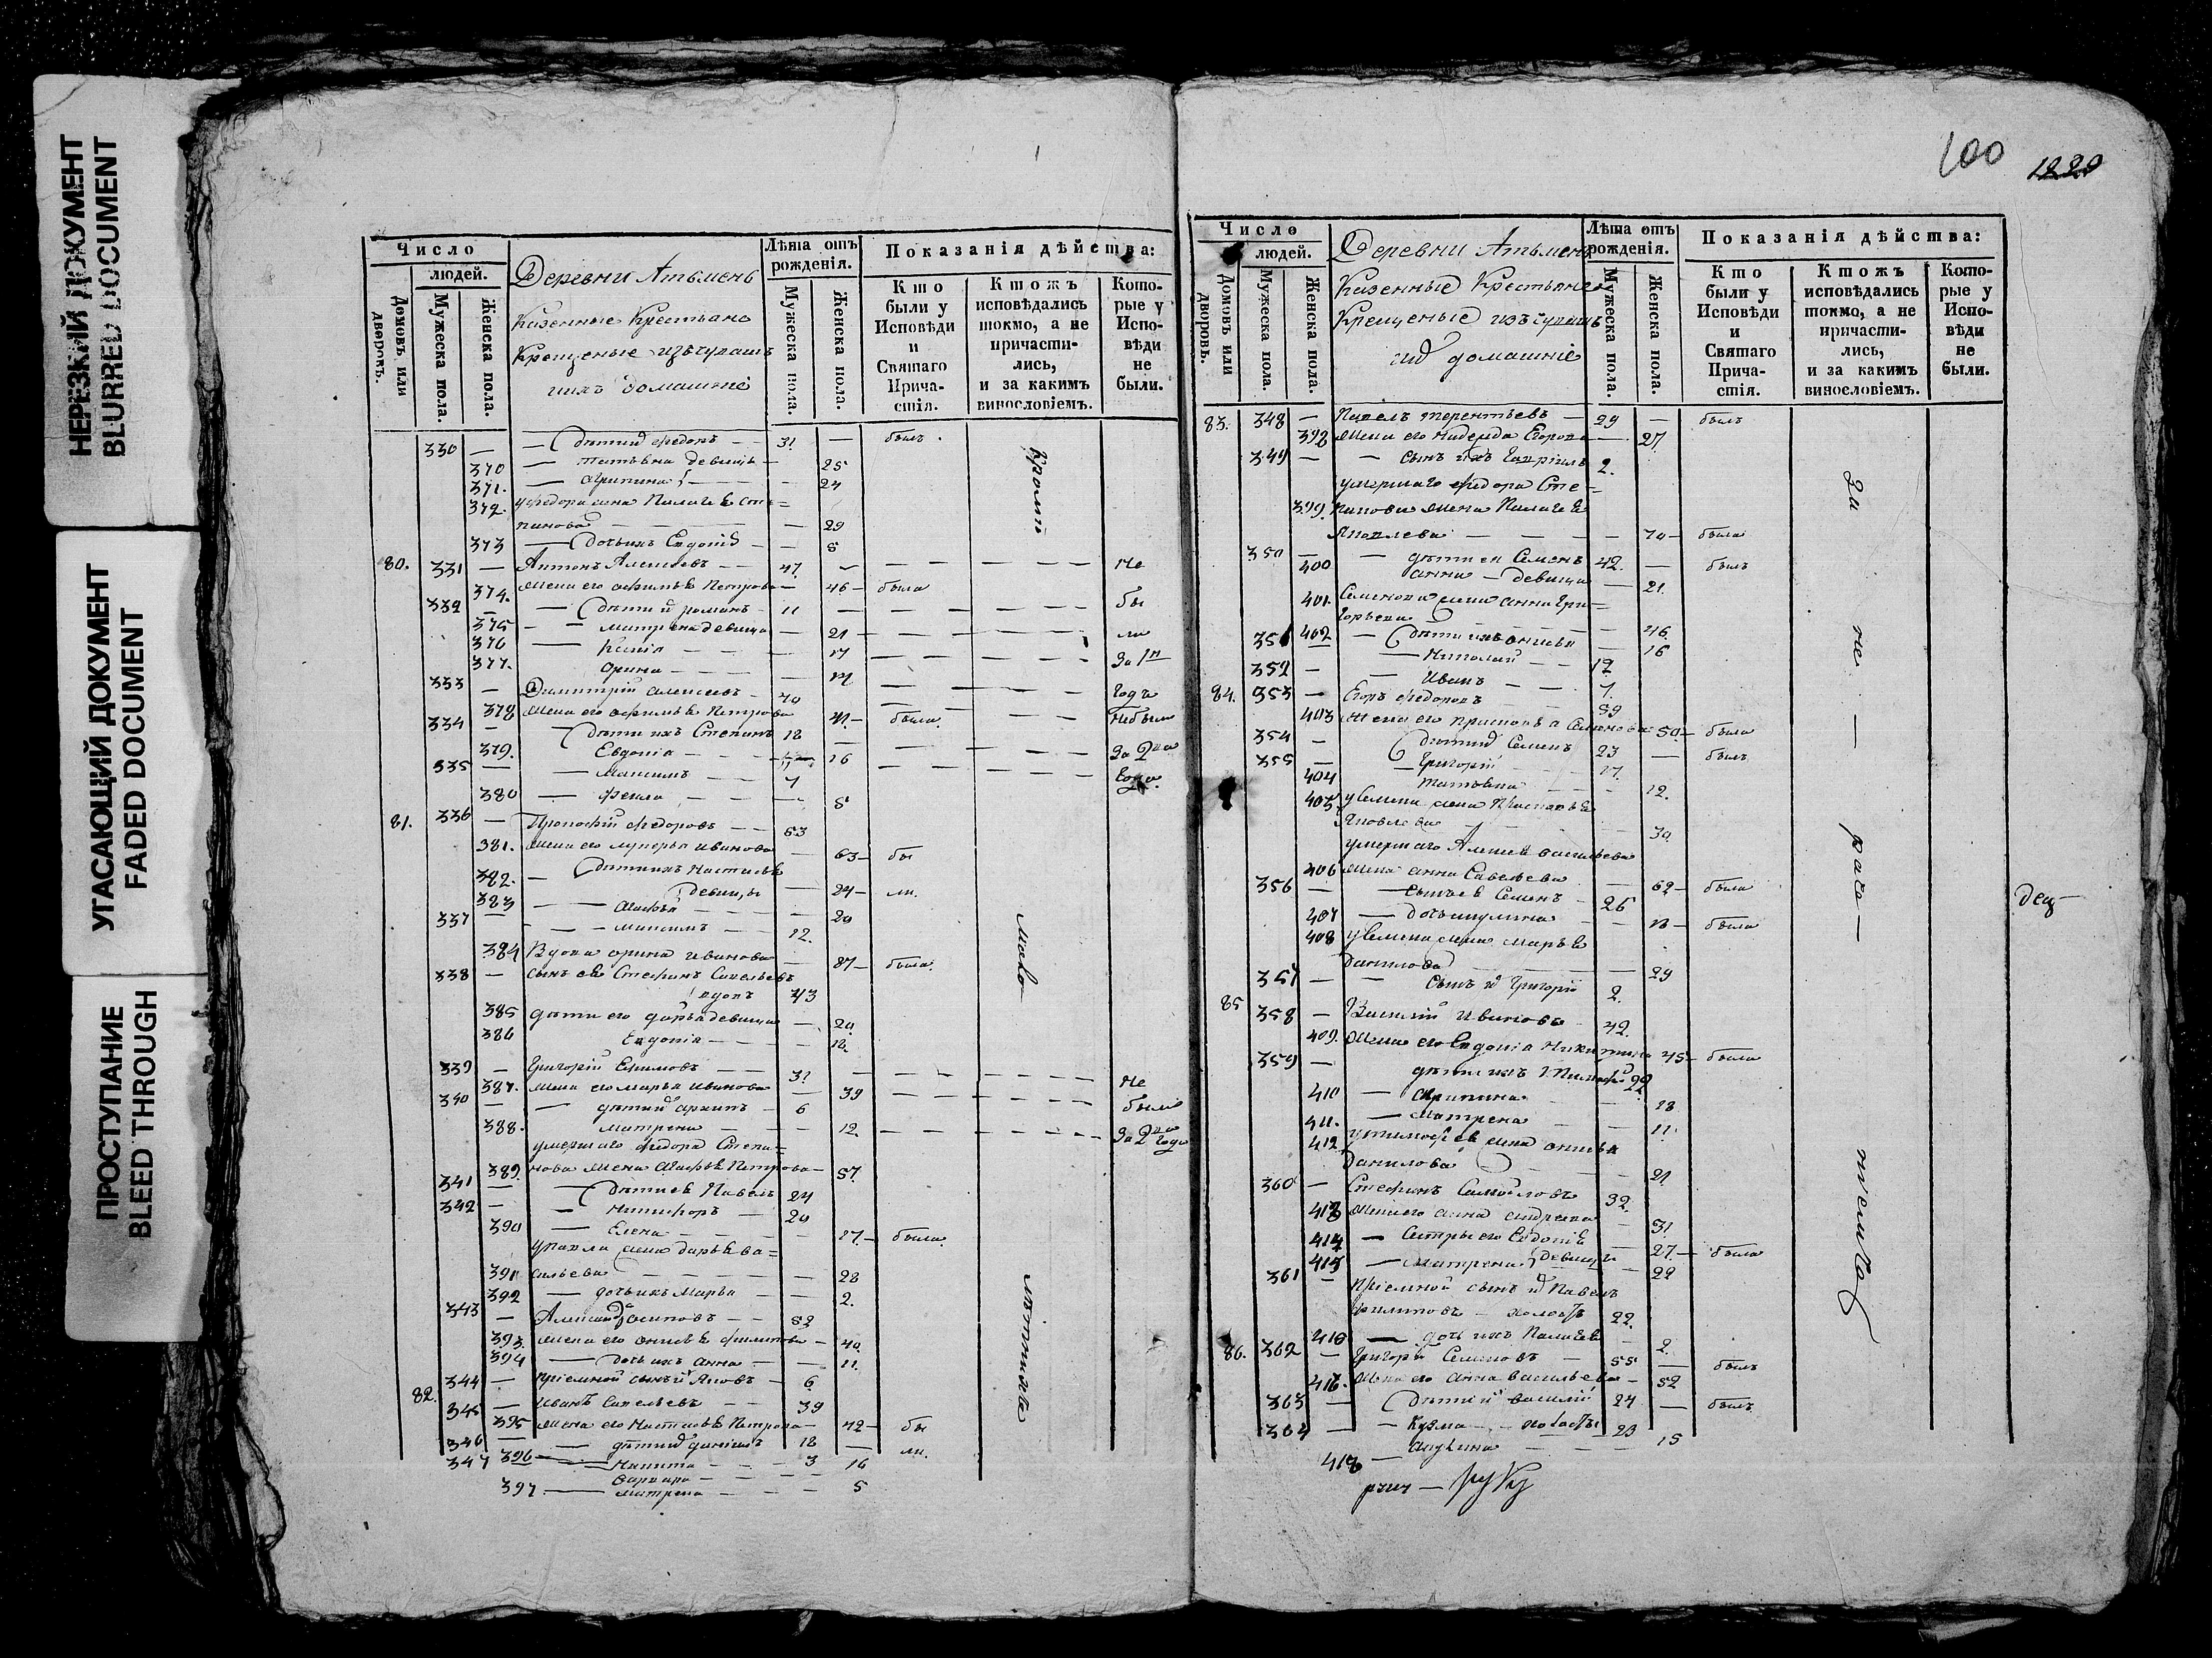 НЕРЕЗКИЙ ДОКУМЕНТ
BLURRED DOCUMENT
УГАСАЮЩИЙ ДОКУМЕНТ
FADED DOCUMENT
ПРОСТУПАНИЕ
BLEED THROUGH
Число
людей.
Домовъ или дворовъ.
Мужеска пола.
Женска пола.
Деревни Атьмень
Казенные Крестьяне
Крещеные изъ чувашъ
ихъ домашніе
Лѣта отъ рожденія.
Мужеска пола.
Женска пола.
Показанія дѣйства:
Кто были у Исповѣди и Святаго Причастія.
Ктожъ исповѣдались токмо, а не причастились, и за какимъ винословіемъ.
Которые у Исповѣди не были.
330 — дѣти Федоръ 31 — былъ
370 — Татьяна девицы — 25
371. — Агрипина — 24
372. у Федора жена Пелагея Сте=
панова — 29
373 — дочь ихъ Евдокія — 5
80. 331 — Антонъ Алексеевъ 47 — Не
374. Жена его Афимья Петрова — 46 — была
332 — дѣти Романъ — 11 — бы
375 — Матрена девица — 21 — ли
376 — Ксенія — 17 — За 1й
377. Орина — годъ
333 — Димитрій Алексеевъ — 40
378 Жена его Афимья Петрова 41 — была Небыли
334 — дѣти ихъ Степанъ 18
379. Евдокія — 16 За 2ва
335 — Максимъ — 7 года.
380 — Фекла — 8
81. 336 — Прокофій Федоровъ — 53
381. Жена его Лукерья Иванова — 63 — бы
382. — дѣти ихъ Настасья
девицы — 24 — ли.
383 — Агафья — 20
337 — Максимъ — 12.
384 Вдова Орина Иванова — 87 — была.
338 — сынъ ея Стефанъ Савельевъ
вдовъ 43
385 дѣти его Дарья девица — 20.
386 Евдокія — 12.
339 — Григорій Ефимовъ — 31 — Не
387. Жена его Марья Иванова — 39 были
340 — дѣти Архипъ — 6
388. Матрена — 12. — За 2ва года
умершаго Федора Степа=
389. нова жена Агафья Петрова — 57.
341 — дѣти ея Павелъ 24
342 — Никифоръ — 20
390 — Елена — 17. — была.
у Павла жена Дарья Ва=
391 сильева — 28
392 — дочь ихъ Марья — 2.
343 — Алексей Осиповъ — 52
393. Жена его Анисья Филипова — 40.
394 — дочь ихъ Анна — 11.
344 — пріемной сынъ Яковъ — 6
82. 345 — Иванъ Савельевъ — 39
395 Жена его Настасья Петрова — 42 — бы
346 — дѣти Данилъ 18 — ли.
347 — Никита — 3
396 Варвара — 16
397 — Матрена — 5
Кромѣ
малолѣтнихъ
100
1229
Число
людей.
Домовъ или дворовъ.
Мужеска пола.
Женска пола.
Деревни Атьмень
Казенные Крестьяне
Крещеные изъ чувашъ
ихъ домашніе
Лѣта отъ рожденія.
Мужеска пола.
Женска пола.
Показанія дѣйства:
Кто были у Исповѣди и Святаго Причастія.
Ктожъ исповѣдались токмо, а не причастились, и за какимъ винословіемъ.
Которые у Исповѣди не были.
83. 348 — Павелъ Терентьевъ — 29 — былъ
398 Жена его Надежда Егорова — 27.
349 — сынъ ихъ Гавріилъ 2.
умершаго Федора Сте=
399. панова жена Пелагея
Яковлева — 70 — была
350 — дѣти ея Семенъ 42. — былъ
400 Анна — девица — 21.
401. Семенова жена Анна Гри=
горьева — 46.
402 — дѣти ихъ Анисья — 16
351 — Николай — 12.
352 — Иванъ — 7.
84. 353 — Егоръ Федоровъ 59
403 Жена его Прасковья Семенова 50 — была
354 — дѣти Семенъ 23 — былъ
355 — Григорій 17.
404 Татьяна — 12.
405 у Семена жена Прасковья
Яковлева — 30.
умершаго Алексея Васильева
406 Жена Анна Савельева — 62 — была
356 — сынъ ея Семенъ 26
407 — дочь Акулина — 18 — была
408 у Семена жена Марья
Данилова — 29
357 — сынъ Григорій 2.
85 358 — Василій Ивановъ 42.
409. Жена его Евдокія Никитина 45 — была
359 — дѣти ихъ Тимофей 22
410 — Агрипина — 18
411. — Матрена — 11.
412 у Тимофея жена Анисья
Данилова — 21
360 — Стефанъ Самойловъ 32.
413 Жена его Анна Андреева — 31
414 — Сестры его Евдокія — 27 — была
415 — Матрена девицы — 22
361 — пріемной сынъ Павелъ
Филиповъ — холостъ 22.
416 — дочь ихъ Пелагея — 2.
86. 362 — Григорій Семеновъ — 55 — былъ
417. Жена его Анна Васильева — 52
363 — дѣти Василій 24 — былъ
364 — Кузма — холостъ 23
418 — Акулина — 15
руку
За не раче- ніемъ